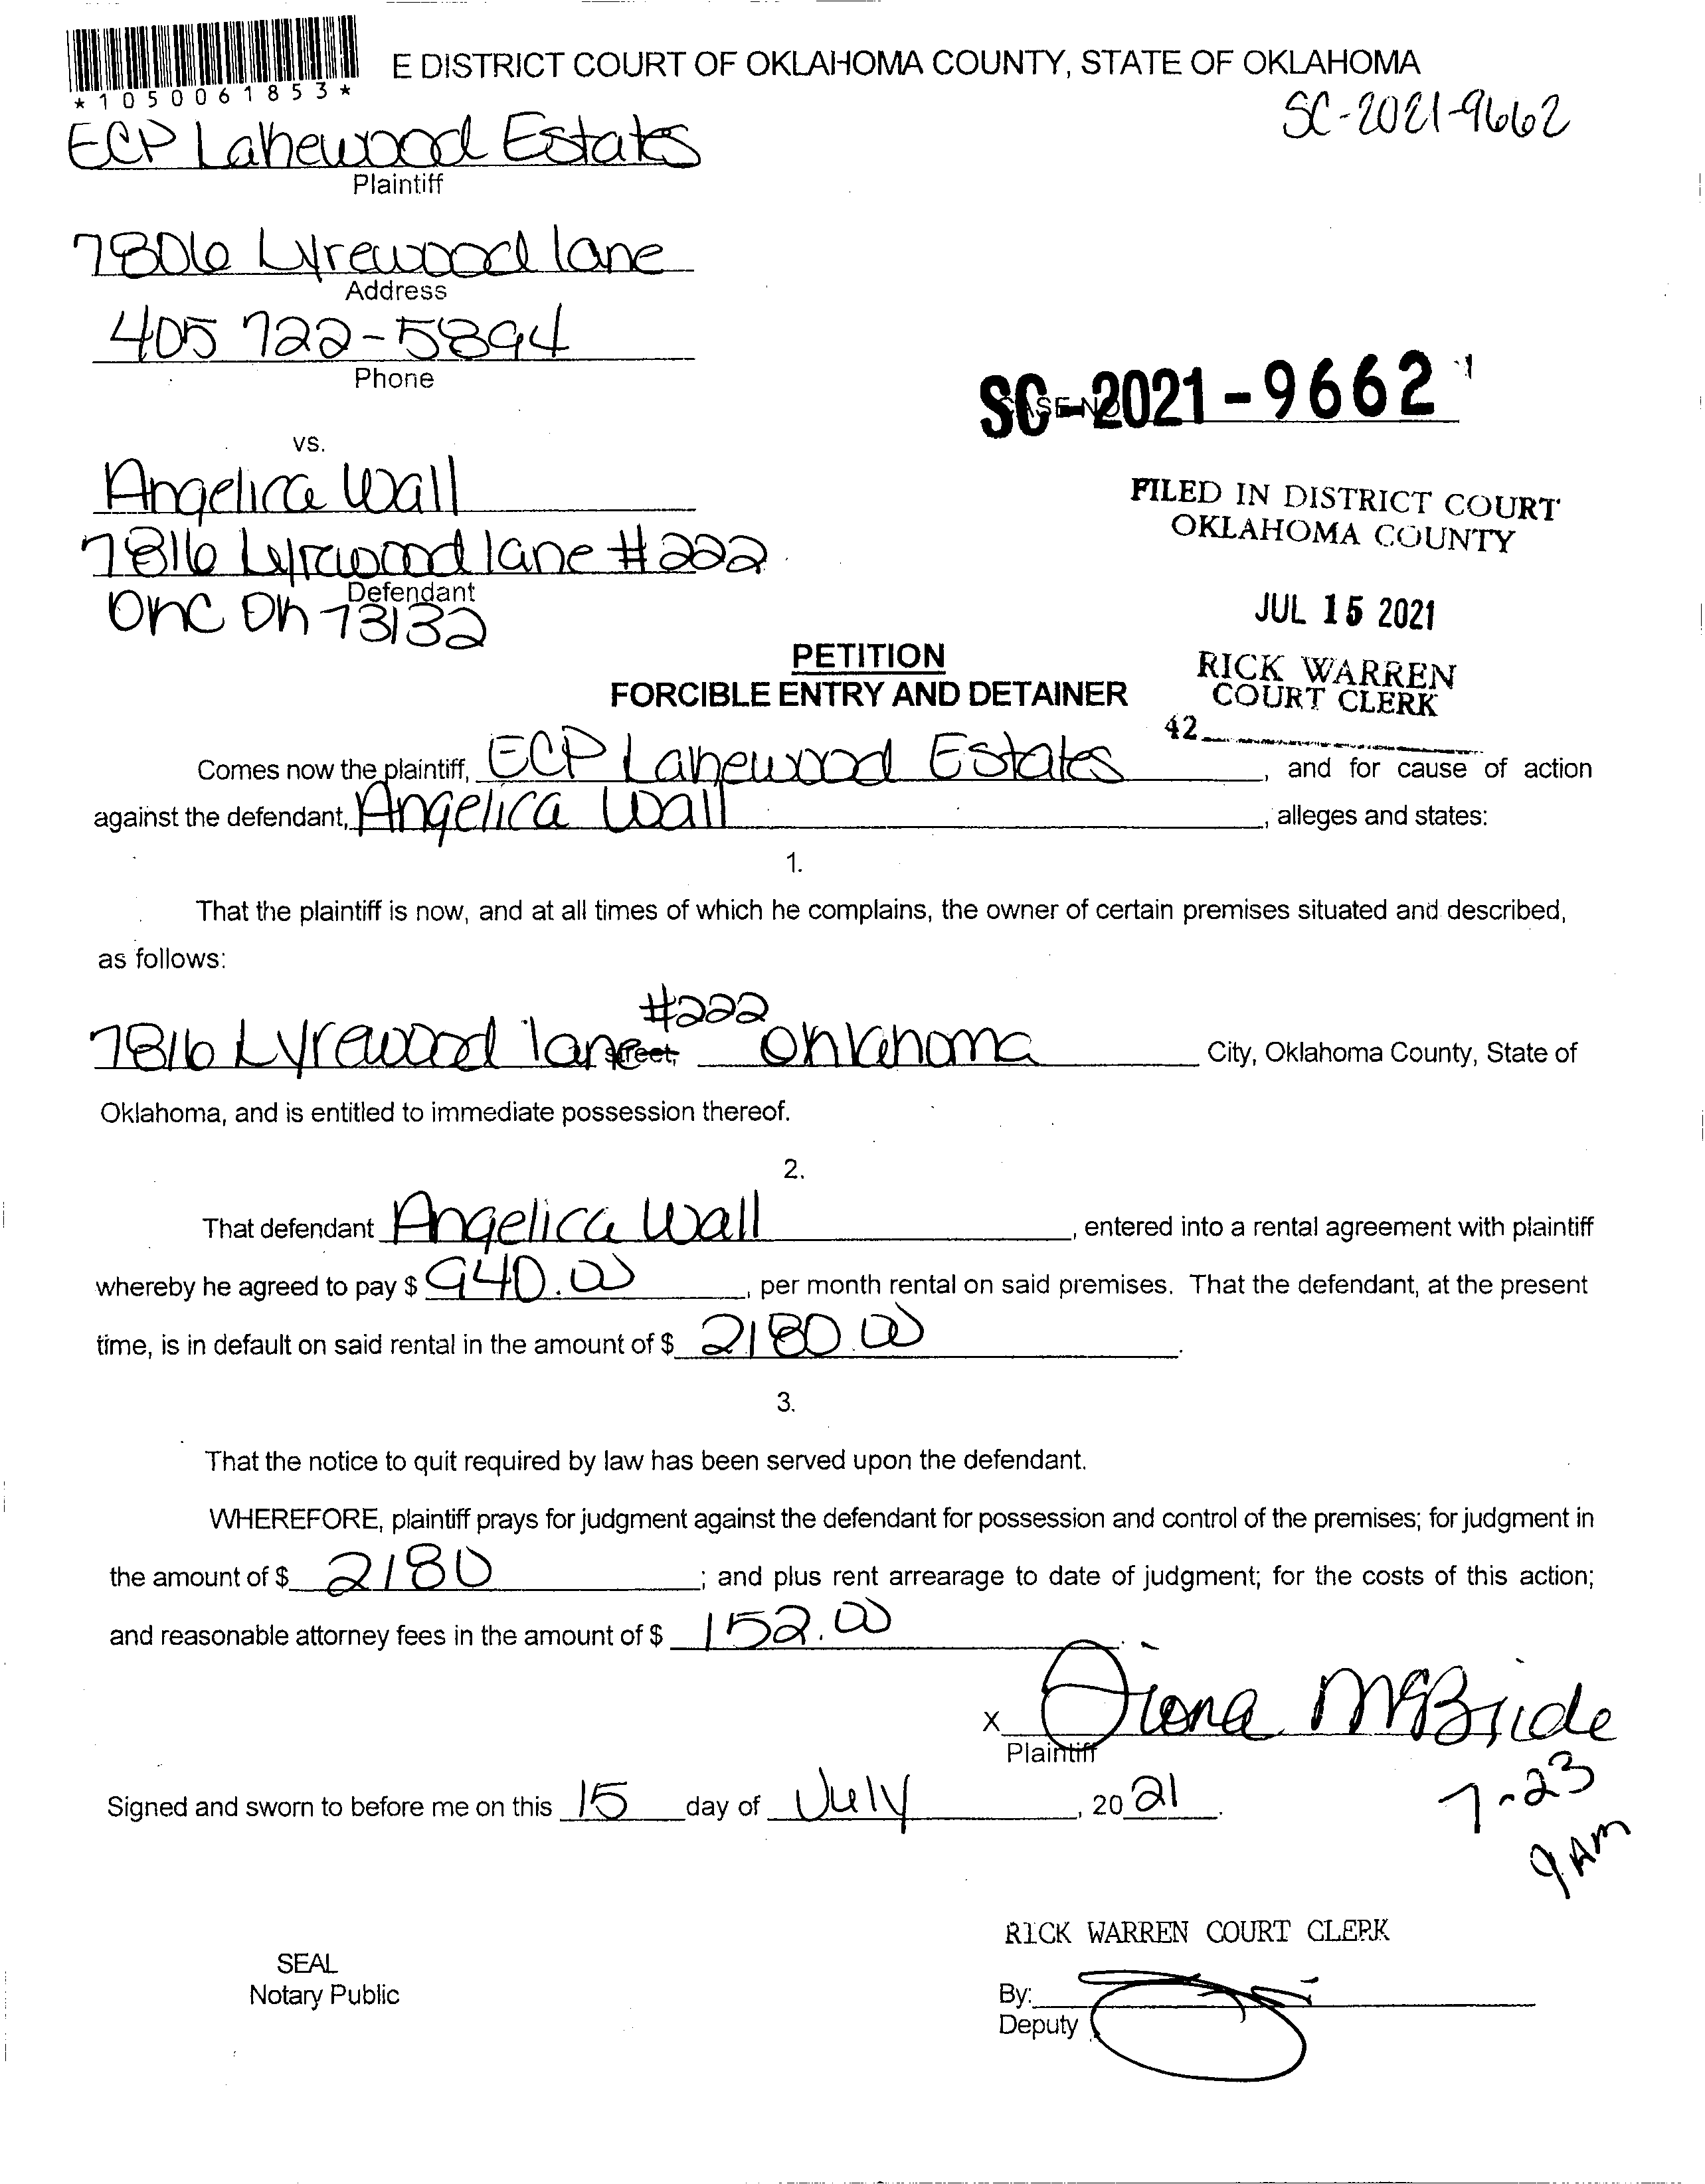 *1050061853*
E DISTRICT COURT OF OKLAHOMA COUNTY, STATE OF OKLAHOMA
SC-2021-9662
ECP Lakewood Estates
Plaintiff
7806 Lyrewood lane
Address
405 722-5894
Phone
SC-2021-9662
CASE NO
vs.
Angelica Wall
7816 Lyrewood lane #222
Defendant
OKC Ok 73132
FILED IN DISTRICT COURT
OKLAHOMA COUNTY
JUL 15 2021
RICK WARREN
COURT CLERK
42
PETITION
FORCIBLE ENTRY AND DETAINER
Comes now the plaintiff, ECP Lakewood Estates, and for cause of action
against the defendant, Angelica Wall, alleges and states:
1.
That the plaintiff is now, and at all times of which he complains, the owner of certain premises situated and described,
as follows:
7816 Lyrewood lane #222 street, Oklahoma City, Oklahoma County, State of
Oklahoma, and is entitled to immediate possession thereof.
2.
That defendant Angelica Wall, entered into a rental agreement with plaintiff
whereby he agreed to pay $ 940.00, per month rental on said premises. That the defendant, at the present
time, is in default on said rental in the amount of $ 2180.00.
3.
That the notice to quit required by law has been served upon the defendant.
WHEREFORE, plaintiff prays for judgment against the defendant for possession and control of the premises; for judgment in
the amount of $ 2180; and plus rent arrearage to date of judgment; for the costs of this action;
and reasonable attorney fees in the amount of $ 152.00
x Diona McBride
Plaintiff
Signed and sworn to before me on this 15 day of July, 2021.
7-23
9 AM
RICK WARREN COURT CLERK
SEAL
Notary Public
By:
Deputy